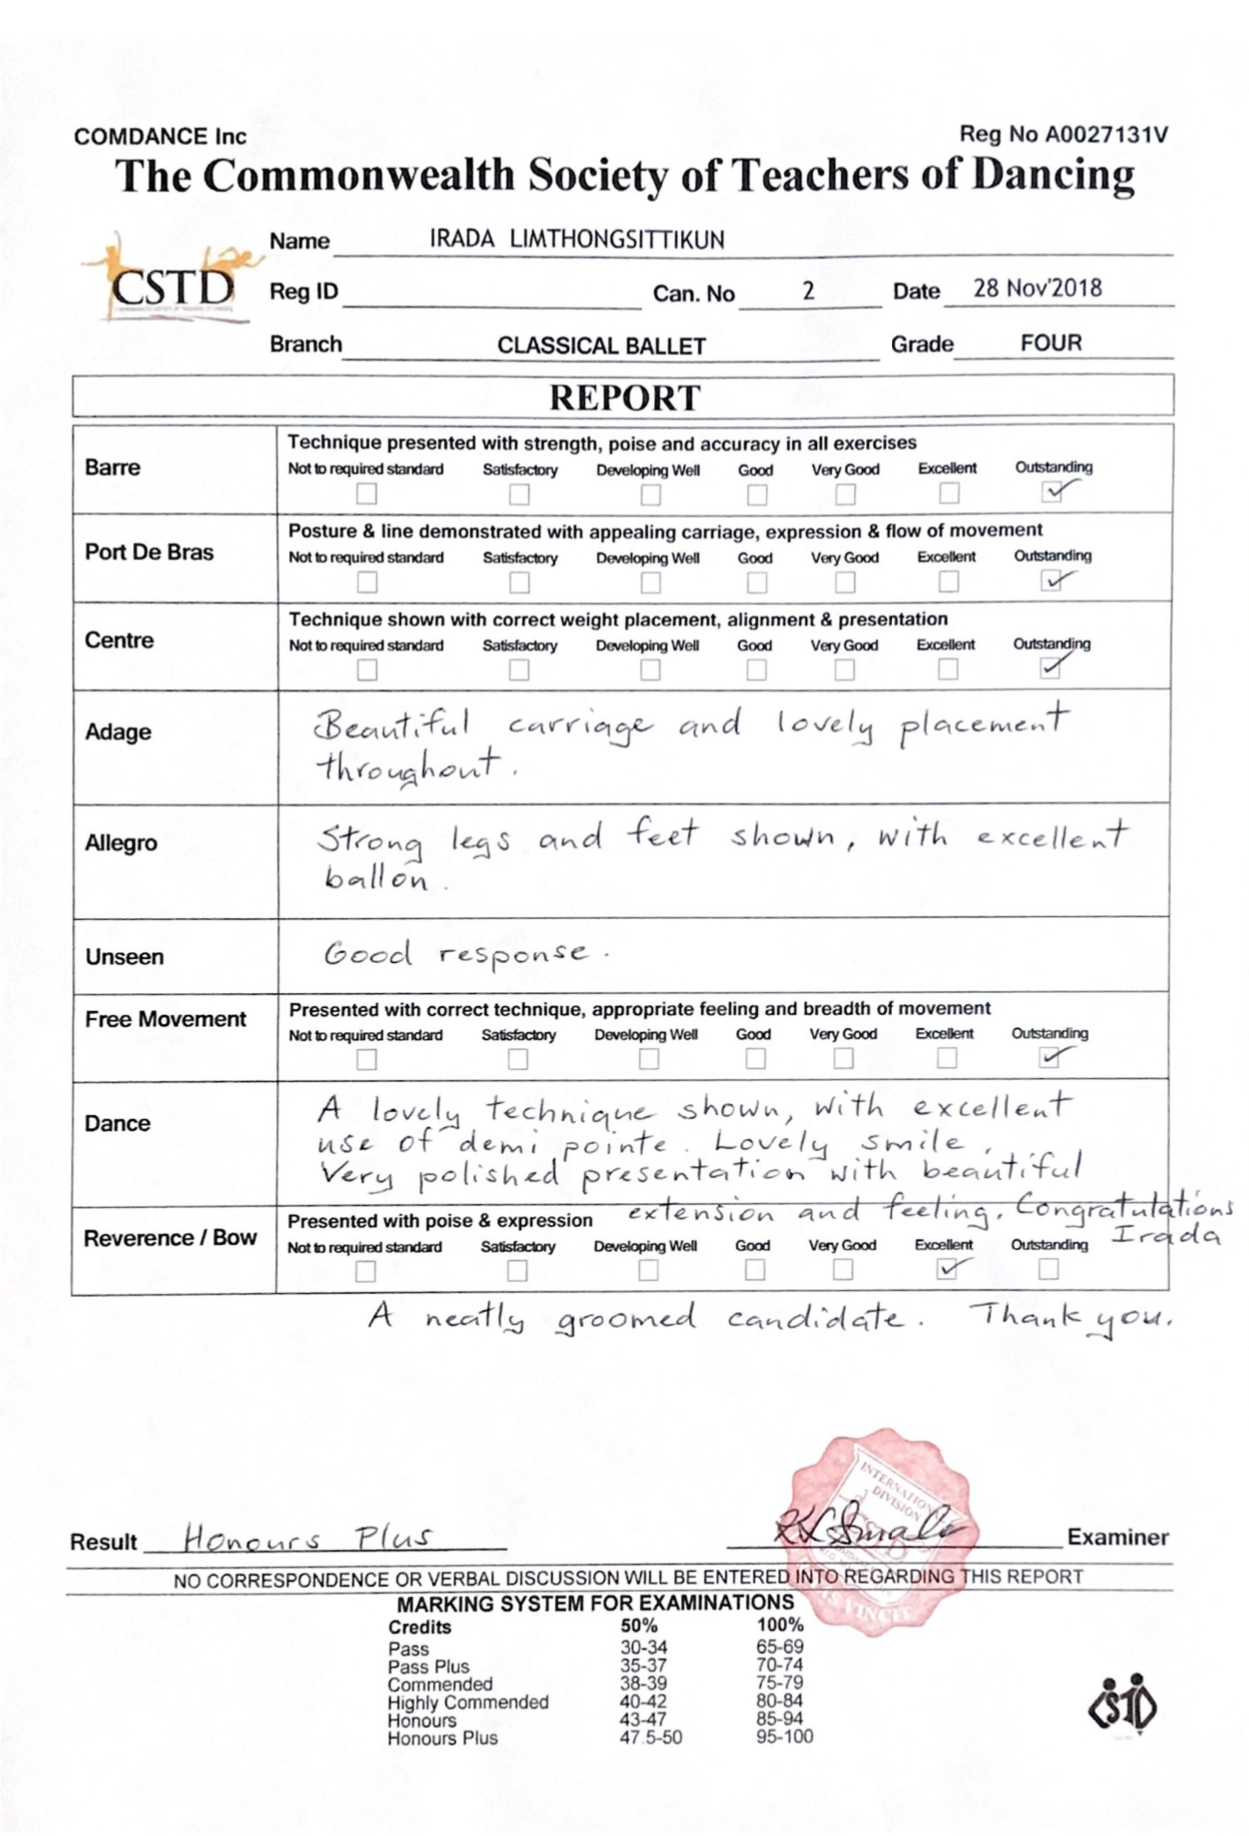 COMDANCE Inc Reg No A0027131V
The Commonwealth Society of Teachers of Dancing
CSTD
Name IRADA LIMTHONGSITTIKUN
Reg ID Can. No 2 Date 28 Nov'2018
Branch CLASSICAL BALLET Grade FOUR
REPORT
Barre
Technique presented with strength, poise and accuracy in all exercises
Not to required standard Satisfactory Developing Well Good Very Good Excellent Outstanding
Port De Bras
Posture & line demonstrated with appealing carriage, expression & flow of movement
Not to required standard Satisfactory Developing Well Good Very Good Excellent Outstanding
Centre
Technique shown with correct weight placement, alignment & presentation
Not to required standard Satisfactory Developing Well Good Very Good Excellent Outstanding
Adage
Beautiful carriage and lovely placement
throughout.
Allegro
Strong legs and feet shown, with excellent
ballon.
Unseen
Good response.
Free Movement
Presented with correct technique, appropriate feeling and breadth of movement
Not to required standard Satisfactory Developing Well Good Very Good Excellent Outstanding
Dance
A lovely technique shown, with excellent
use of demi pointe. Lovely smile.
Very polished presentation with beautiful
extension and feeling. Congratulations
Irada
Reverence / Bow
Presented with poise & expression
Not to required standard Satisfactory Developing Well Good Very Good Excellent Outstanding
A neatly groomed candidate. Thank you.
INTERNATIONAL
DIVISION
Result Honours Plus Examiner
NO CORRESPONDENCE OR VERBAL DISCUSSION WILL BE ENTERED INTO REGARDING THIS REPORT
MARKING SYSTEM FOR EXAMINATIONS
Credits 50% 100%
Pass 30-34 65-69
Pass Plus 35-37 70-74
Commended 38-39 75-79
Highly Commended 40-42 80-84
Honours 43-47 85-94
Honours Plus 47.5-50 95-100
CSTD